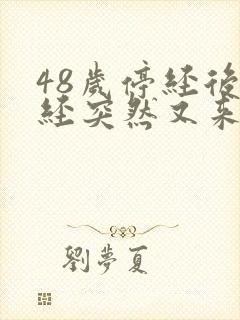 48歲停經後
經突然又來
劉夢夏